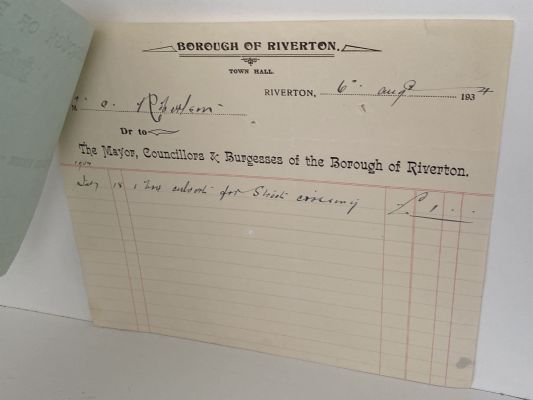 BOROUGH OF RIVERTON.
TOWN HALL.
RIVERTON, 6th Augt 1934
M. A. Robertson
Dr to
The Mayor, Councillors & Burgesses of the Borough of Riverton.
1934
July 18 1 culvert for Street crossing £ 1 . .